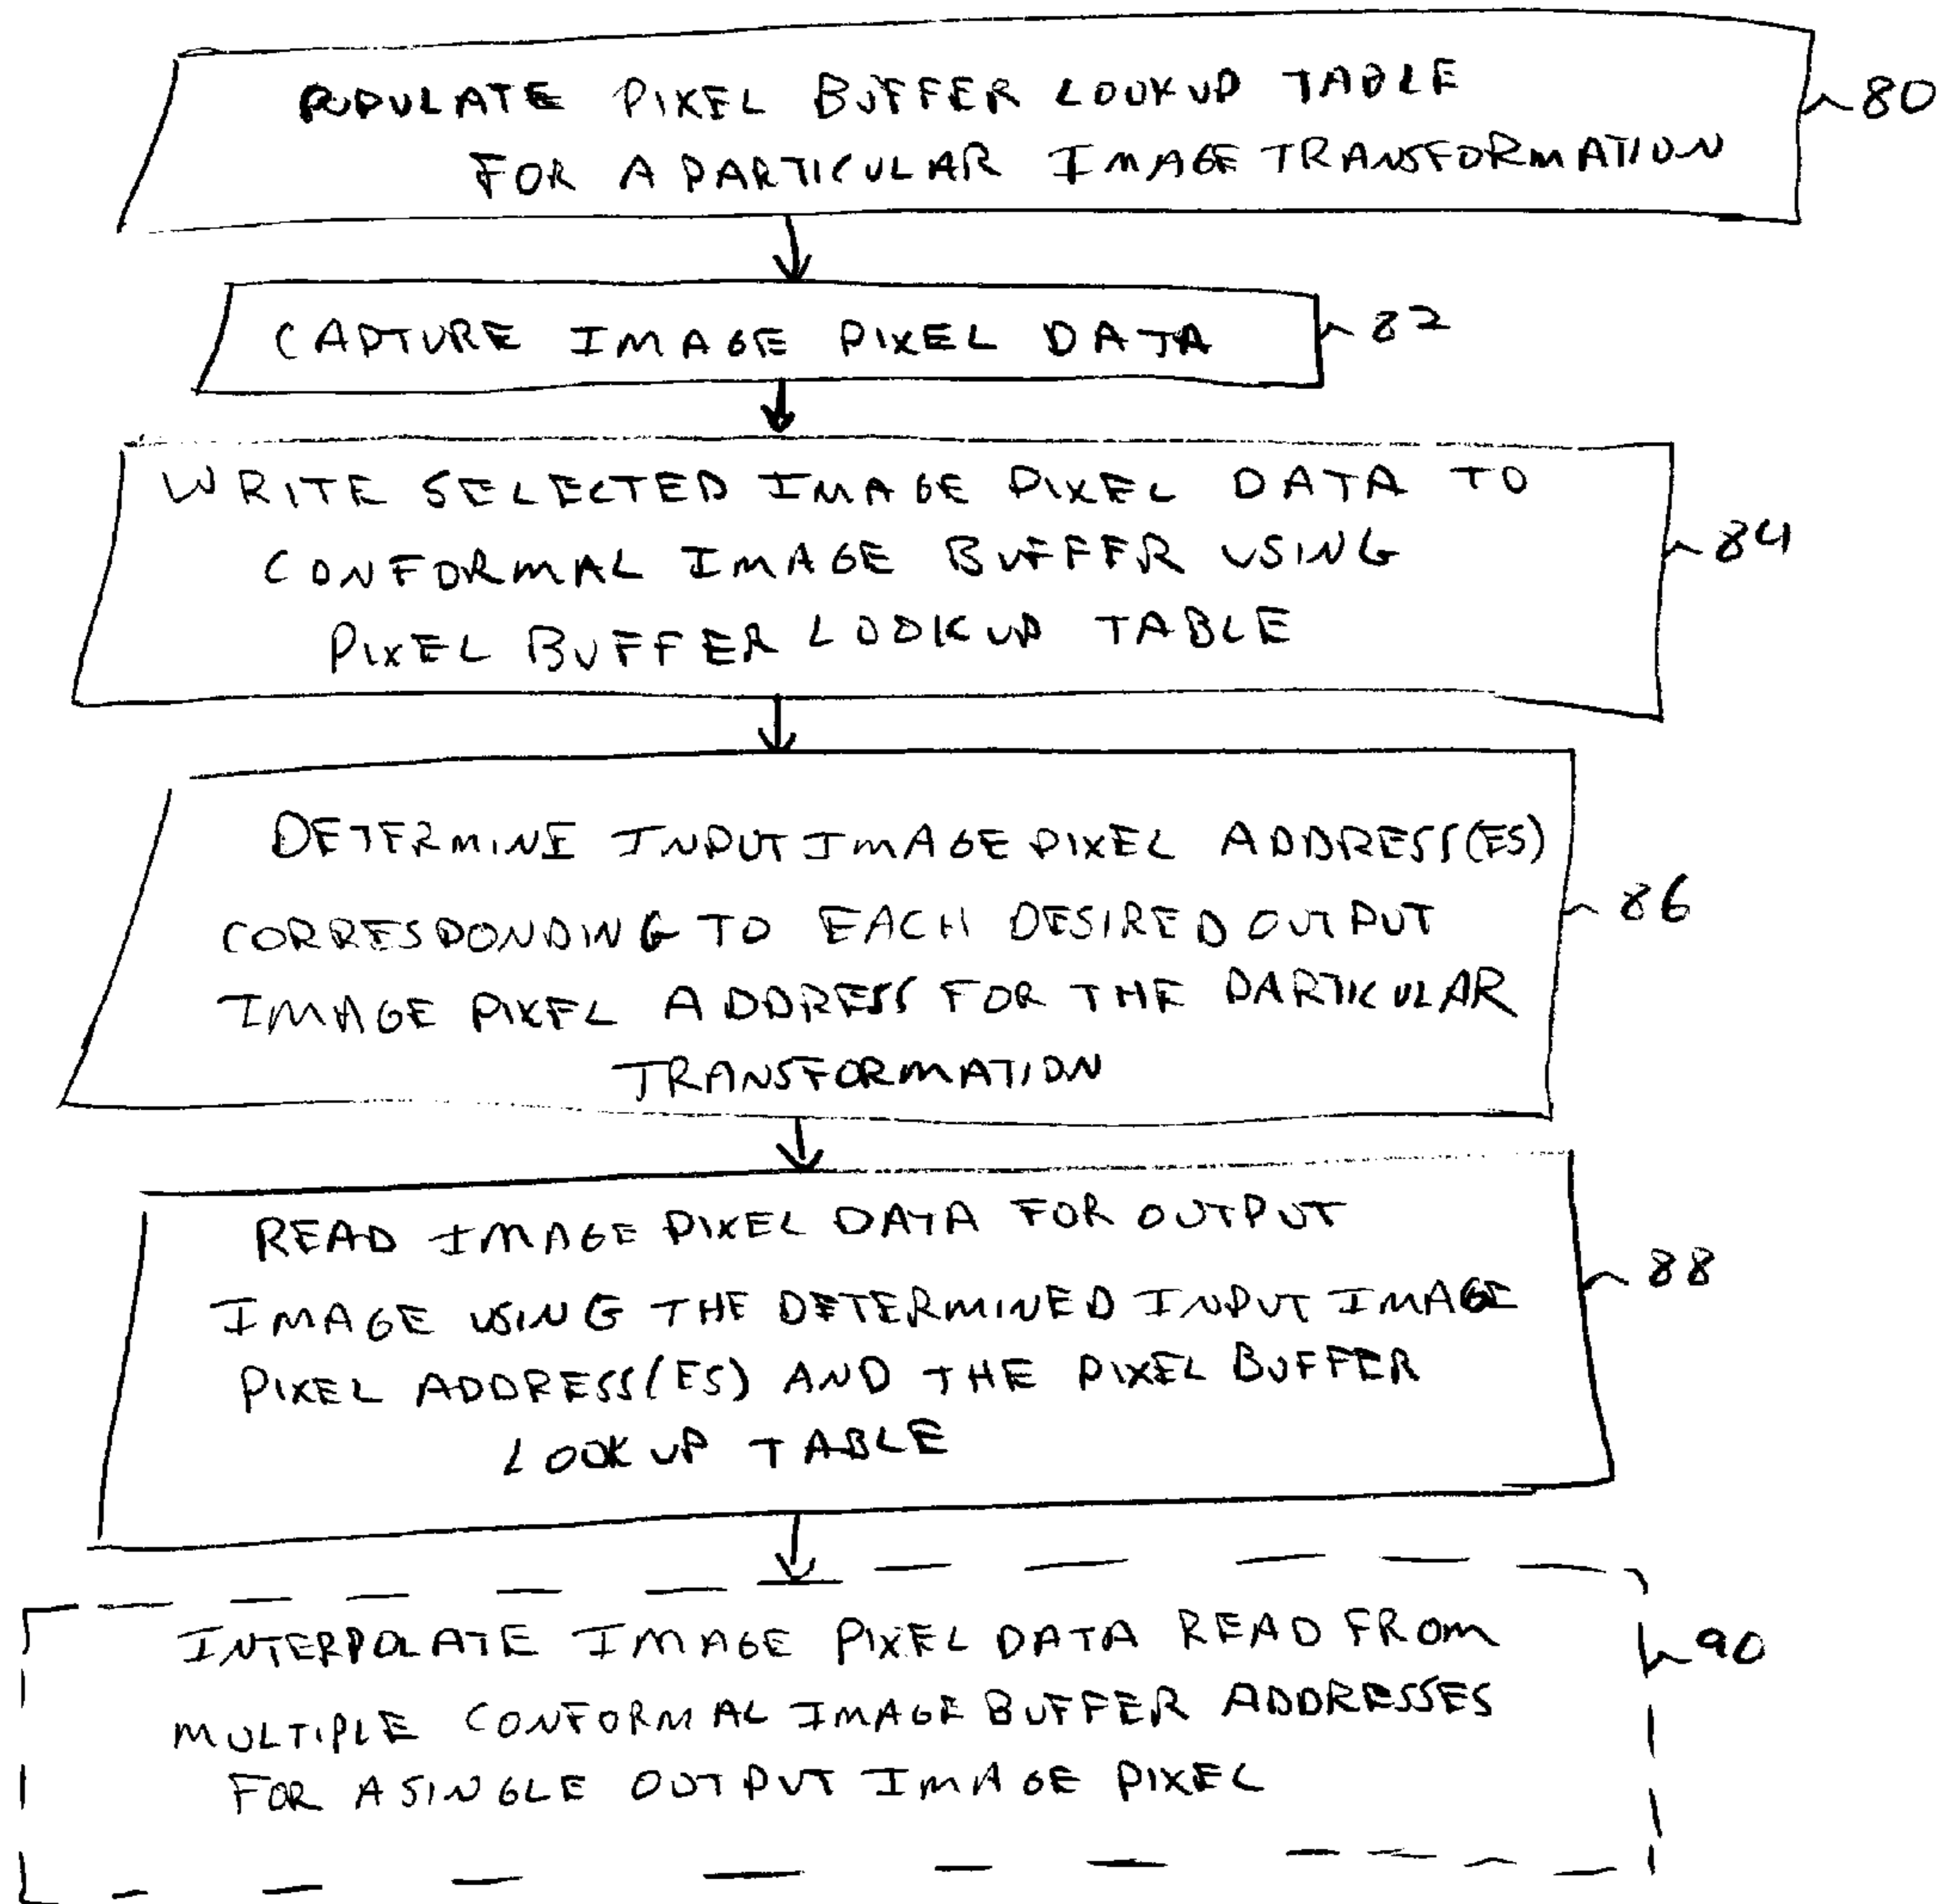 POPULATE PIXEL BUFFER LOOKUP TABLE
FOR A PARTICULAR IMAGE TRANSFORMATION
80
CAPTURE IMAGE PIXEL DATA
82
WRITE SELECTED IMAGE PIXEL DATA TO
CONFORMAL IMAGE BUFFER USING
PIXEL BUFFER LOOKUP TABLE
84
DETERMINE INPUT IMAGE PIXEL ADDRESS(ES)
CORRESPONDING TO EACH DESIRED OUTPUT
IMAGE PIXEL ADDRESS FOR THE PARTICULAR
TRANSFORMATION
86
READ IMAGE PIXEL DATA FOR OUTPUT
IMAGE USING THE DETERMINED INPUT IMAGE
PIXEL ADDRESS(ES) AND THE PIXEL BUFFER
LOOKUP TABLE
88
INTERPOLATE IMAGE PIXEL DATA READ FROM
MULTIPLE CONFORMAL IMAGE BUFFER ADDRESSES
FOR A SINGLE OUTPUT IMAGE PIXEL
90